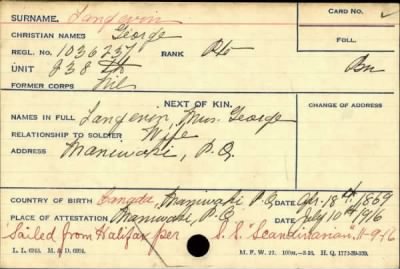 SURNAME. Langevin CARD NO.
CHRISTIAN NAMES George FOLL.
REGL. NO. 1036237 RANK Pte
UNIT 238 th Bn
FORMER CORPS Nil
NEXT OF KIN.
CHANGE OF ADDRESS
NAMES IN FULL Langevin, Mrs. George
RELATIONSHIP TO SOLDIER Wife
ADDRESS Maniwaki, P.Q.
COUNTRY OF BIRTH Canada, Maniwaki P.Q. DATE Apr. 18th, 1869
PLACE OF ATTESTATION Maniwaki, P.Q. DATE July 10th 1916
Sailed from Halifax per S.S. "Scandinavian" 11-9-16
L. L. M. & D.
M. F. W. 22. H. Q.